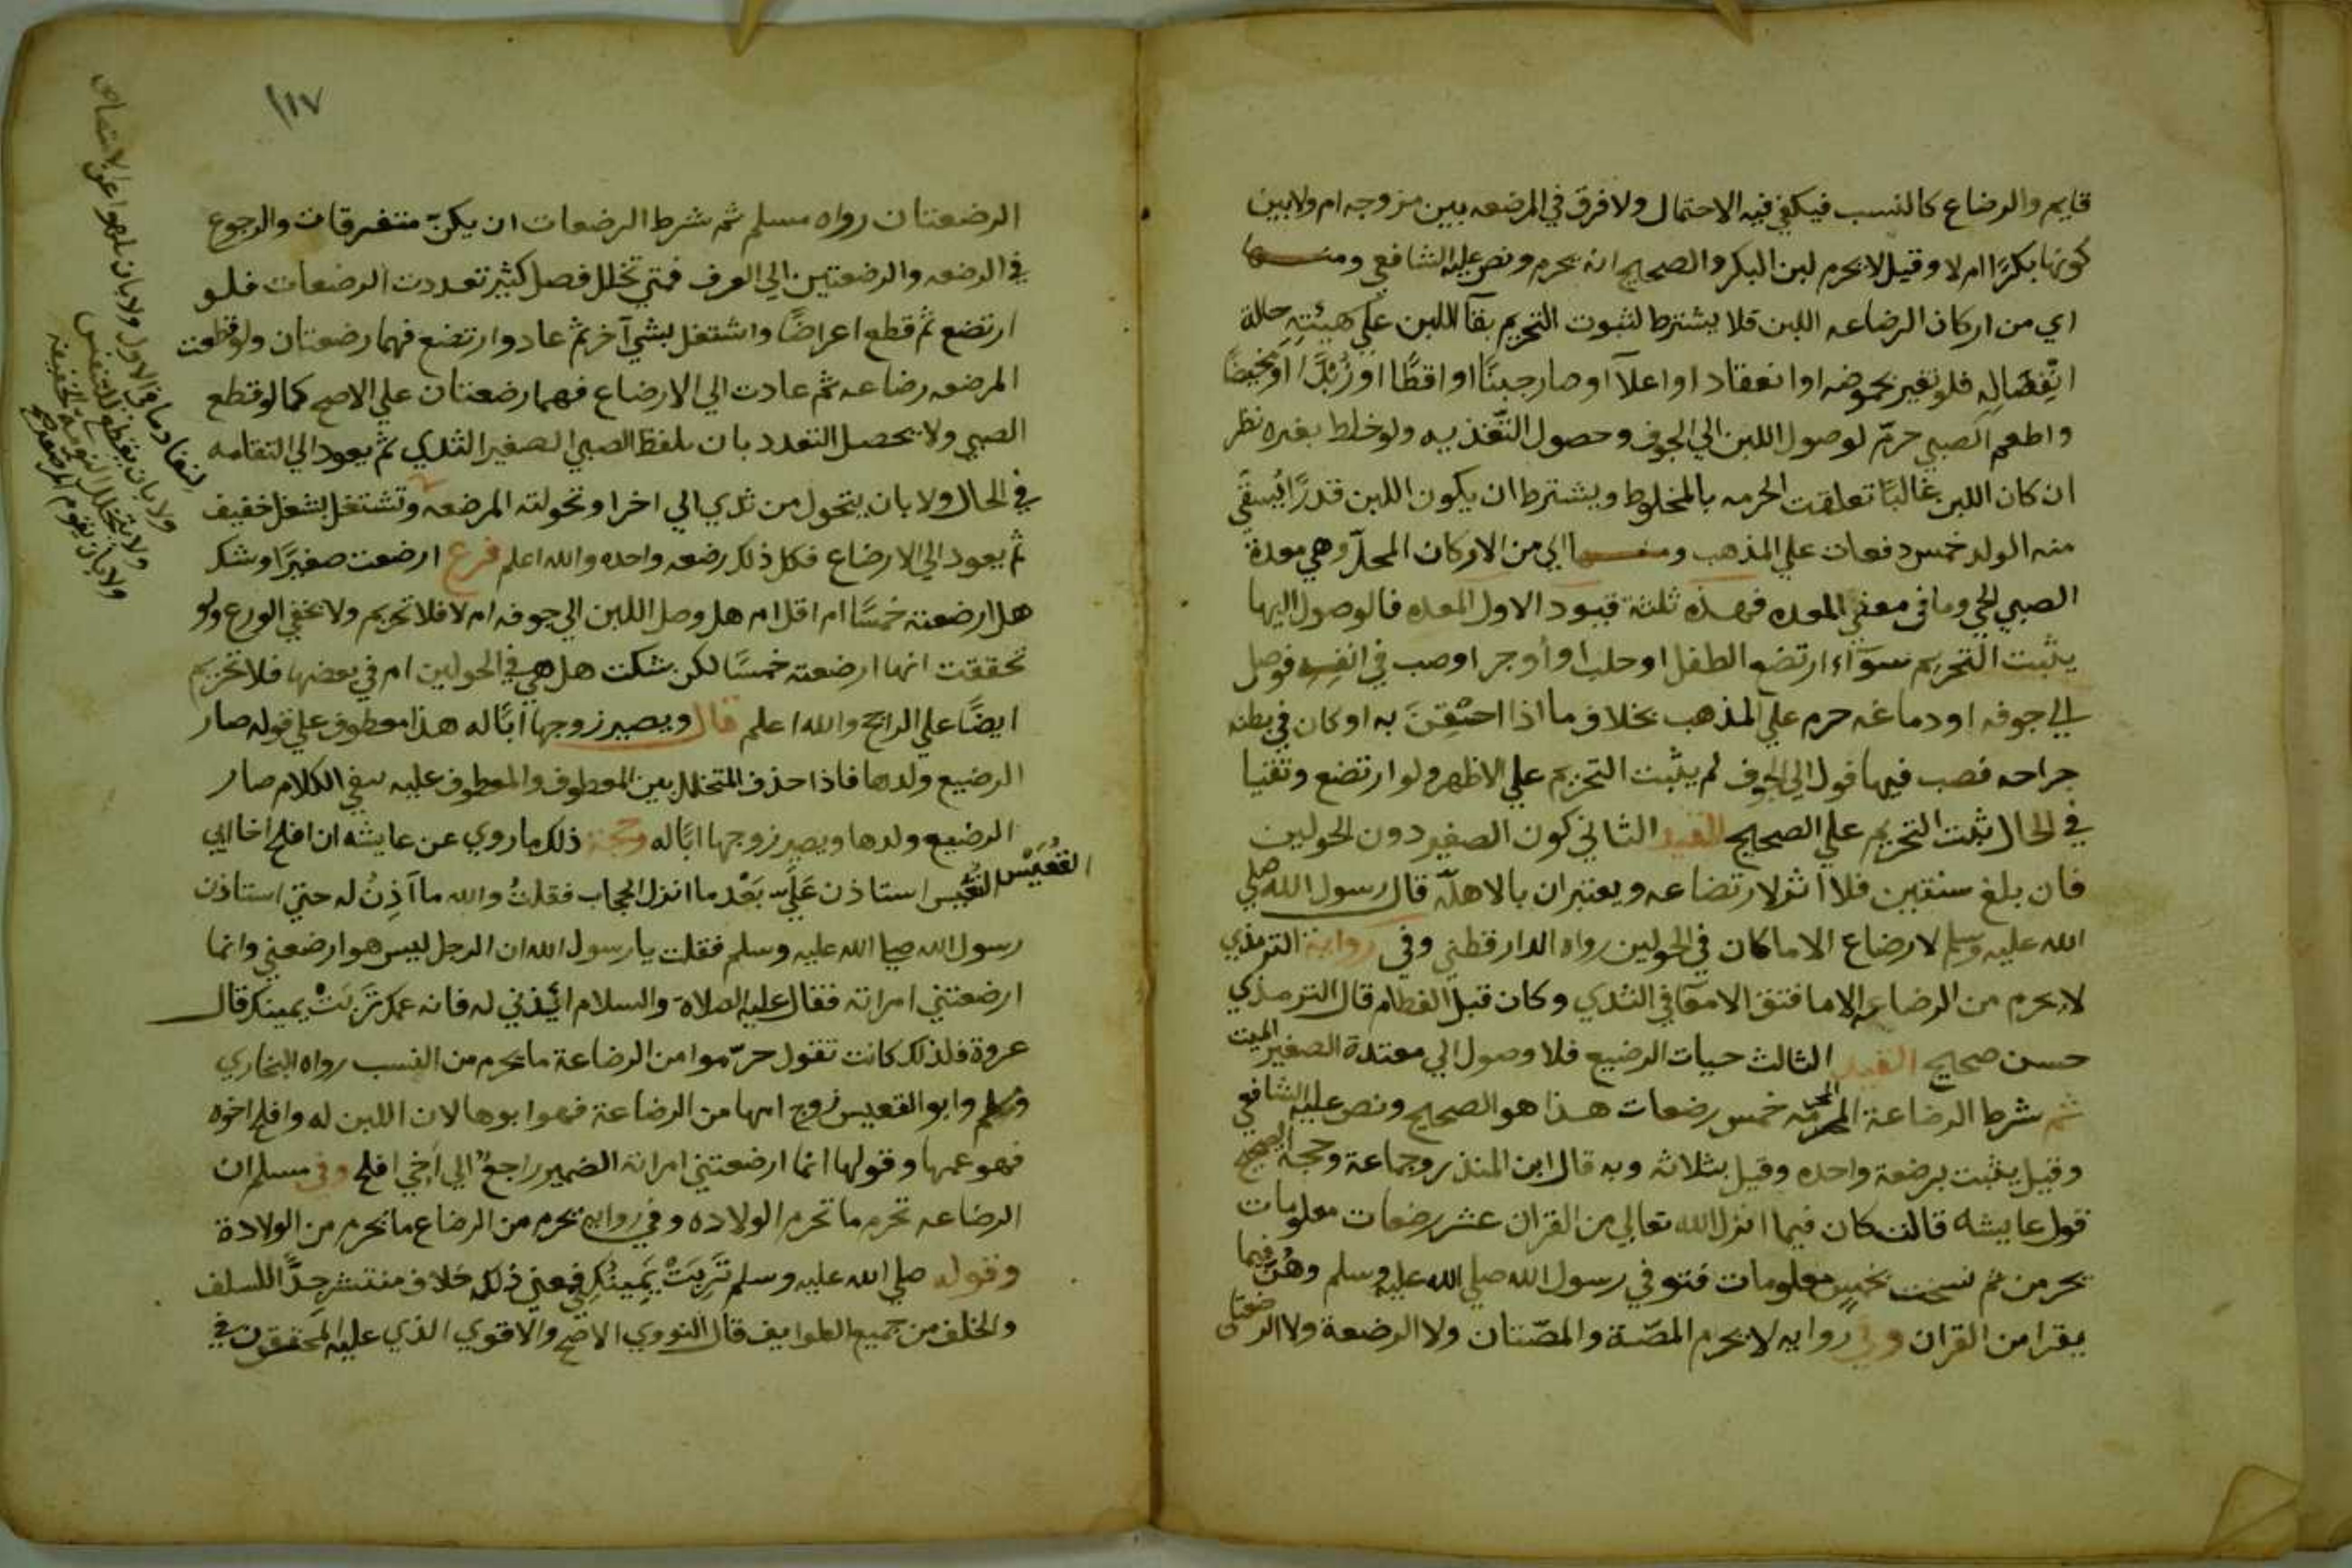 قايم والرضاع كالنسب فيكفي فيه الاحتمال ولا فرق في المرضعه بين مزوجه ام ولا بين
كونها بكرًا ام لا وقيل لا يحرم لبن البكر والصحيح انه يحرم ونص عليه الشافعي ومنها
اي من اركان الرضاعه اللبن فلا يشترط لثبوت التحريم بقآ اللبن علي هيئته حالة
انفصاله فلو تغير بحموضه او انعقاد او اغلآ او صار جبنًا او اقطًا او زبدًا او مخيضًا
واطعم الصبي حرّم لوصول اللبن الي الجوف وحصول التغذيه ولو خلط بغيره نظر
ان كان اللبن غالبًا تعلقت الحرمه بالمخلوط ويشترط ان يكون اللبن قدرًا يُسقَي
منه الولد خمس دفعات علي المذهب ومنها اي من الاركان المحلّ وهي معدة
الصبي الحي وما في معني المعده فهذه ثلثة قيود الاول المعده فالوصول اليها
يثبت التحريم سوآء ارتضع الطفل او حلب او أوجر او صب في انفه فوصل
الي جوفه او دماغه حرم علي المذهب بخلاف ما اذا احتقن به او كان في بطنه
جراحه فصب فيها فول الي الجوف لم يثبت التحريم علي الاظهر ولو ارتضع وتقيا
في الحال ثبت التحريم علي الصحيح القيد الثاني كون الصغير دون الحولين
فان بلغ سنتين فلا اثر لارتضاعه ويعتبران بالاهلّه قال رسول الله صلي
الله عليه وسلم لا رضاع الا ما كان في الحولين رواه الدارقطني وفي رواية الترمذي
لا يحرم من الرضاعه الا ما فتق الامعآ في الثدي وكان قبل الفطام قال الترمذي
حسن صحيح القيد الثالث حيات الرضيع فلا وصول الي معدة الصغير الميت
ثم شرط الرضاعة المحرمه خمس رضعات هذا هو الصحيح ونص عليه الشافعي
وقيل يثبت برضعة واحده وقيل بثلاثه وبه قال ابن المنذر وجماعة وحجة الصحيح
قول عايشه قالت كان فيما انزل الله تعالي من القران عشر رضعات معلومات
يحرمن ثم نسخت بخمس معلومات فتوفي رسول الله صلي الله عليه وسلم وهُنّ فيما
يقرا من القران وفي روايه لا يحرم المصّة والمصّتان ولا الرضعة ولا الرضعتان
١١٧
الرضعتان رواه مسلم ثم شرط الرضعات ان يكنّ متفرقات والرجوع
في الرضعه والرضعتين الي العرف فمتي تخلل فصل كثير تعددت الرضعات فلو
ارتضع ثم قطع اعراضًا واشتغل بشي آخر ثم عاد وارتضع فهما رضعتان ولو قطعت
المرضعه رضاعه ثم عادت الي الارضاع فهما رضعتان علي الاصح كما لو قطع
الصبي ولا يحصل التعدد بان يلفظ الصبي الصغير الثدي ثم يعود الي التقامه
في الحال ولا بان يتحول من ثدي الي اخر او تحولته المرضعه وتشتغل بشغل خفيف
ثم يعود الي الارضاع فكل ذلك رضعه واحده والله اعلم فرع ارضعت صغيرًا وشك
هل ارضعته خمسًا ام اقل ام هل وصل اللبن الي جوفه ام لا فلا تحريم ولا يخفي الورع ولو
تحققت انها ارضعته خمسًا لكن شكت هل هي في الحولين ام في بعضها فلا تحريم
ايضًا علي الراجح والله اعلم قال ويصير زوجها ابًا له هذا معطوف علي قوله صار
الرضيع ولدها فاذا حذف المتخلل بين المعطوف والمعطوف عليه بقي الكلام صار
الرضيع ولدها ويصير زوجها ابًا له وحجة ذلك ما روي عن عايشه ان افلح اخا ابي
القُعيس القعيس استاذن عَلَيّ بَعْد ما انزل الحجاب فقلتُ والله ما آذِنُ له حتي استاذن
رسول الله صلي الله عليه وسلم فقلت يا رسول الله ان الرجل ليس هو ارضعني وانما
ارضعتني امراته فقال عليه الصلاة والسلام ائذني له فانه عمك تَرِبَتْ يمينك قال
عروة فلذلك كانت تقول حرّموا من الرضاعة ما يحرم من النسب رواه البخاري
ومسلم وابو القعيس زوج امها من الرضاعة فهو ابوها لان اللبن له وافلح اخوه
فهو عمها وقولها انما ارضعتني امراته الضمير راجعٌ الي اخي افلح وفي مسلم ان
الرضاعه تحرم ما تحرم الولاده وفي روايه يحرم من الرضاع ما يحرم من الولادة
وقوله صلي الله عليه وسلم تَرِبَتْ يَمِينُكِ في معني ذلك خلاف منتشر جدًّا للسلف
والخلف من جميع الطوايف قال النووي الاصح والاقوي الذي عليه المحققون في
لنفاد ما في الاول ولا بان يلهو عن الامتصاص
ولا بان يقطع للتنفس
ولا يتخلل النومة الخفيفه
ولا بان تقوم المرضعه